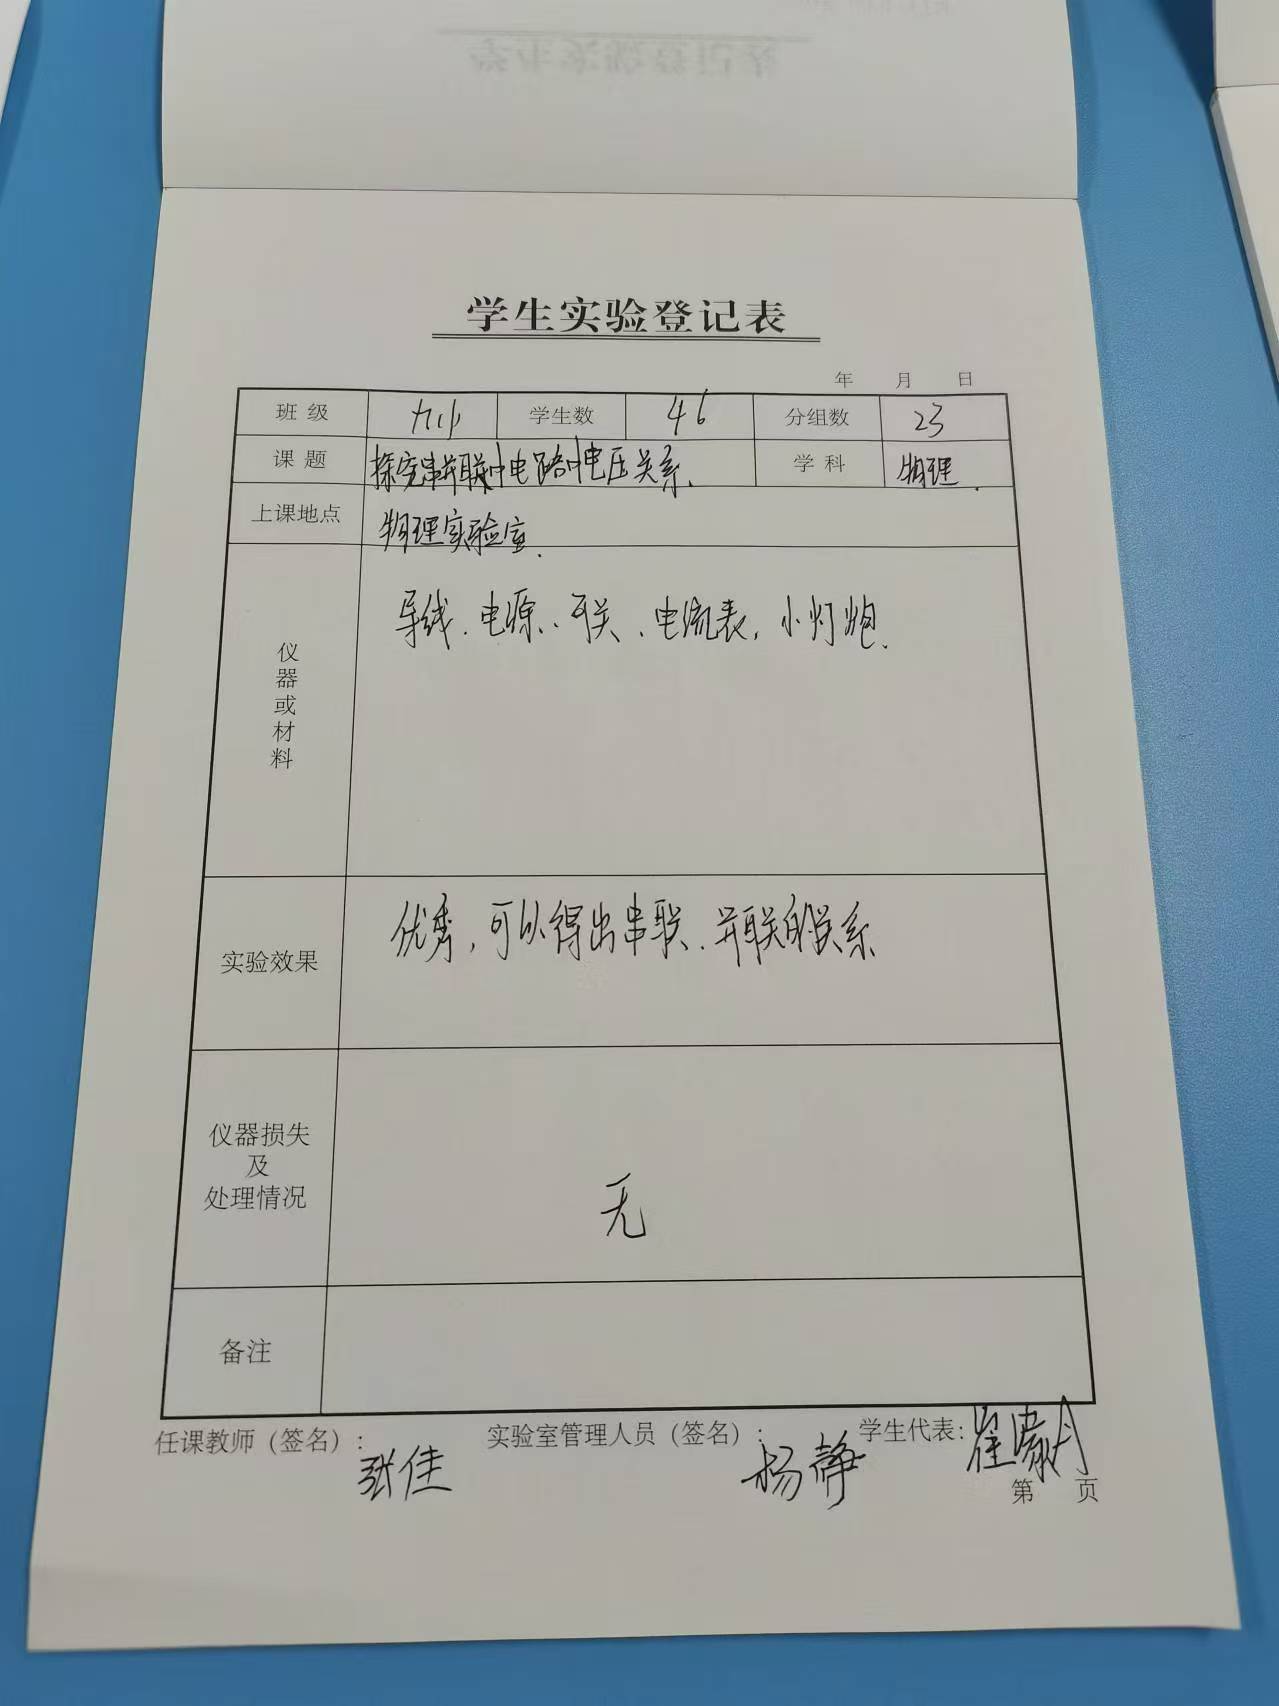 学生实验登记表
年 月 日
班级 九小 学生数 46 分组数 23
课题 探究串并联中电路中电压关系. 学科 物理.
上课地点 物理实验室.
仪器或材料 导线、电源、开关、电流表,小灯炮.
实验效果 优秀,可以得出串联、并联的关系
仪器损失及处理情况 无
备注
任课教师(签名): 张佳 实验室管理人员(签名): 杨静 学生代表: 崔
第 页